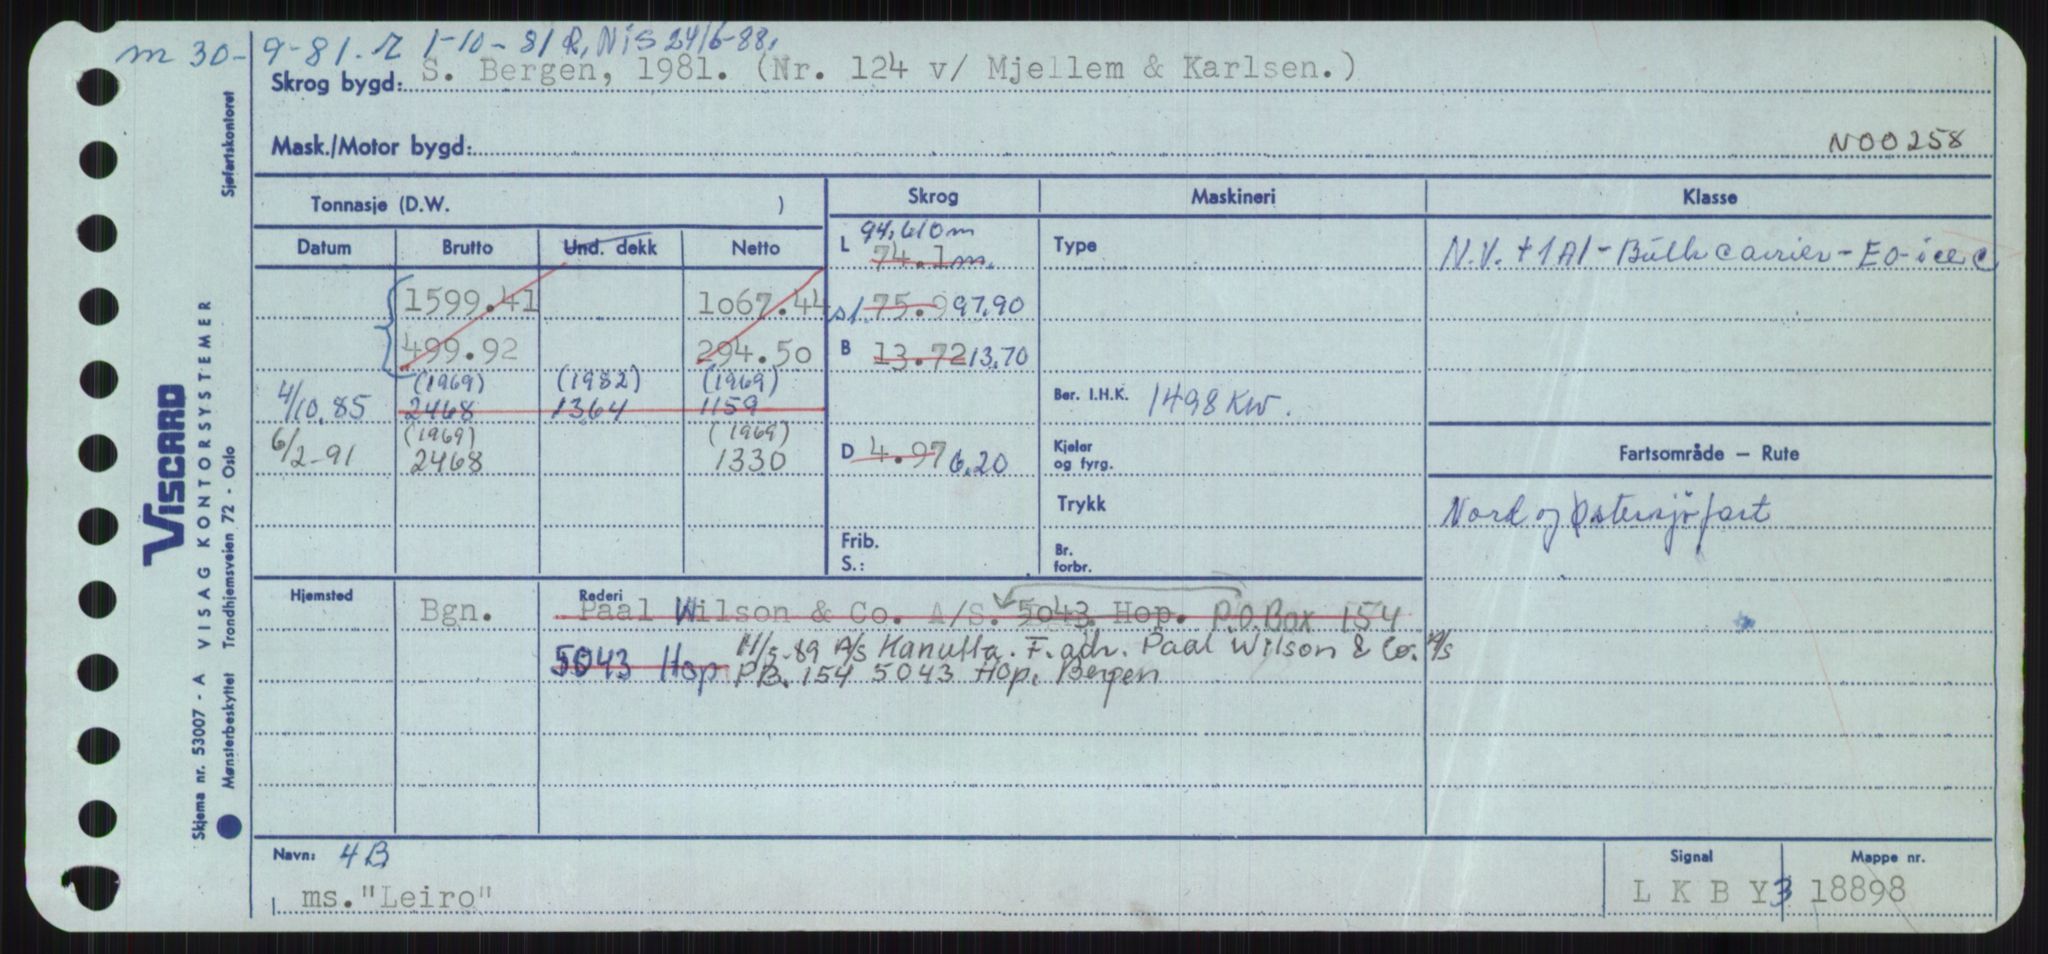 m 30-9-81. r 1-10-81 R, NIS 24/6-88.
Skrog bygd: S. Bergen, 1981. (Nr. 124 v/ Mjellem & Karlsen.)
Mask./Motor bygd: N00258
Tonnasje (D.W. ) Skrog Maskineri Klasse
Datum Brutto Und. dekk Netto
L 94,610m Type
74.1m. N.V. + 1A1 - Bulk carrier - E0 - ice C
1599.41 1o67.44 sl. 75.9 97,90
499.92 294.5o B 13.72 13,70
(1969) (1982) (1969)
4/10.85 2468 1364 1159 Ber. I.H.K. 1498 KW.
(1969) (1969)
6/2-91 2468 1330 D 4.97 6,20 Kjeler og fyrg. Fartsområde – Rute
Trykk Nord og Østersjøfart
Frib. Br.
S.: forbr.
Hjemsted Bgn. Rederi Paal Wilson & Co. A/S. 5o43 Hop. P.O.Box 154
11/5-89 A/S Kanutta. F. adr. Paal Wilson & Co. A/S
5043 Hop PB. 154 5043 Hop, Bergen
Navn: 4B Signal Mappe nr.
ms."Leiro" L K B Y3 18898
VISCARD
VISAG KONTORSYSTEMER
Skjema nr. 53007 - A
Mønsterbeskyttet Trondhjemsveien 72 - Oslo
Sjøfartskontoret